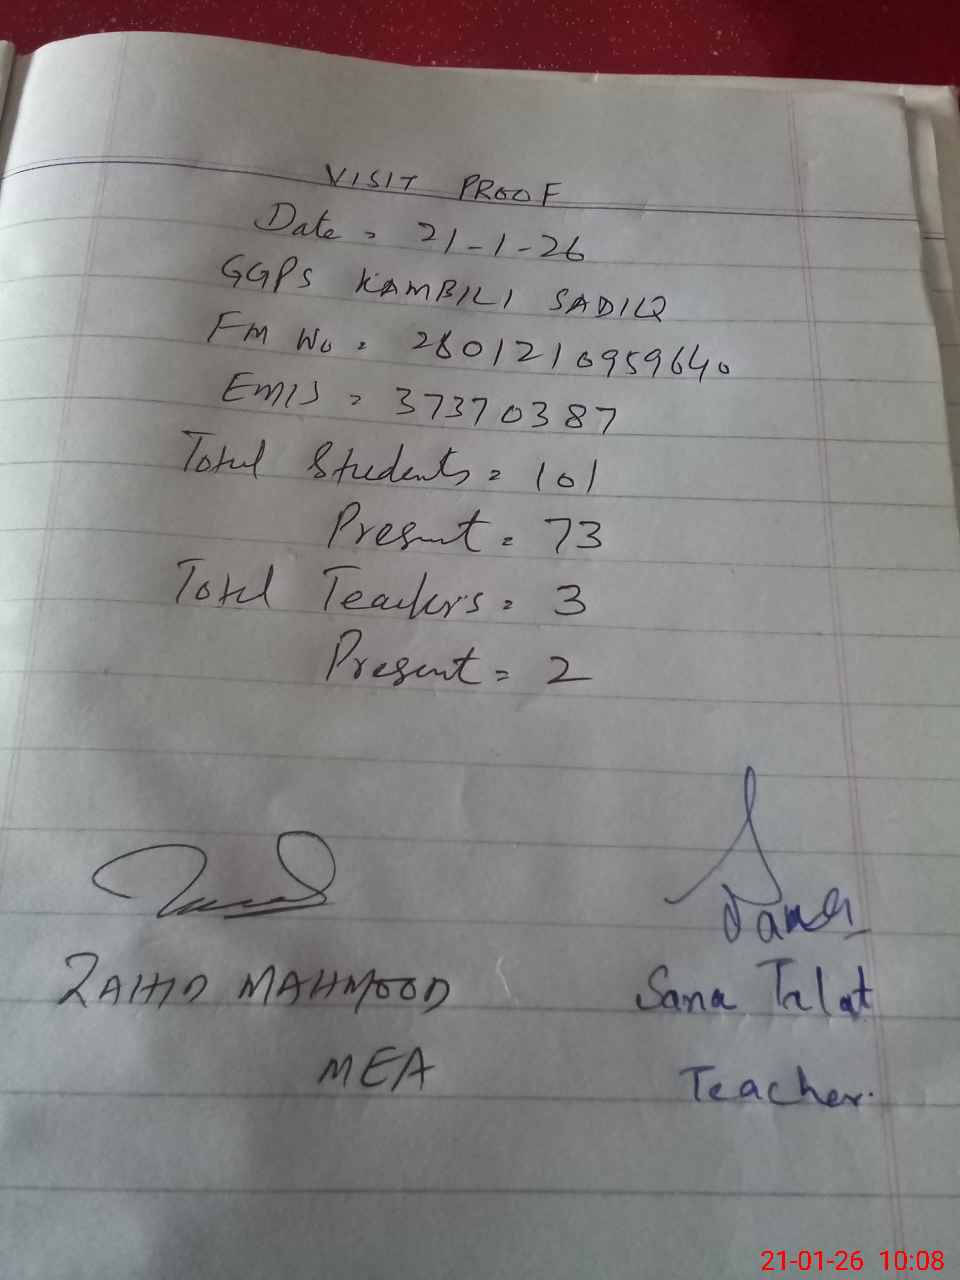 VISIT PROOF
Date = 21-1-26
GGPS KAMBILI SADIQ
FM No = 2801210959640
EMIS = 37370387
Total Students = 101
Present = 73
Total Teachers = 3
Present = 2
Sana
ZAHID MAHMOOD
Sana Talat
MEA
Teacher.
21-01-26 10:08